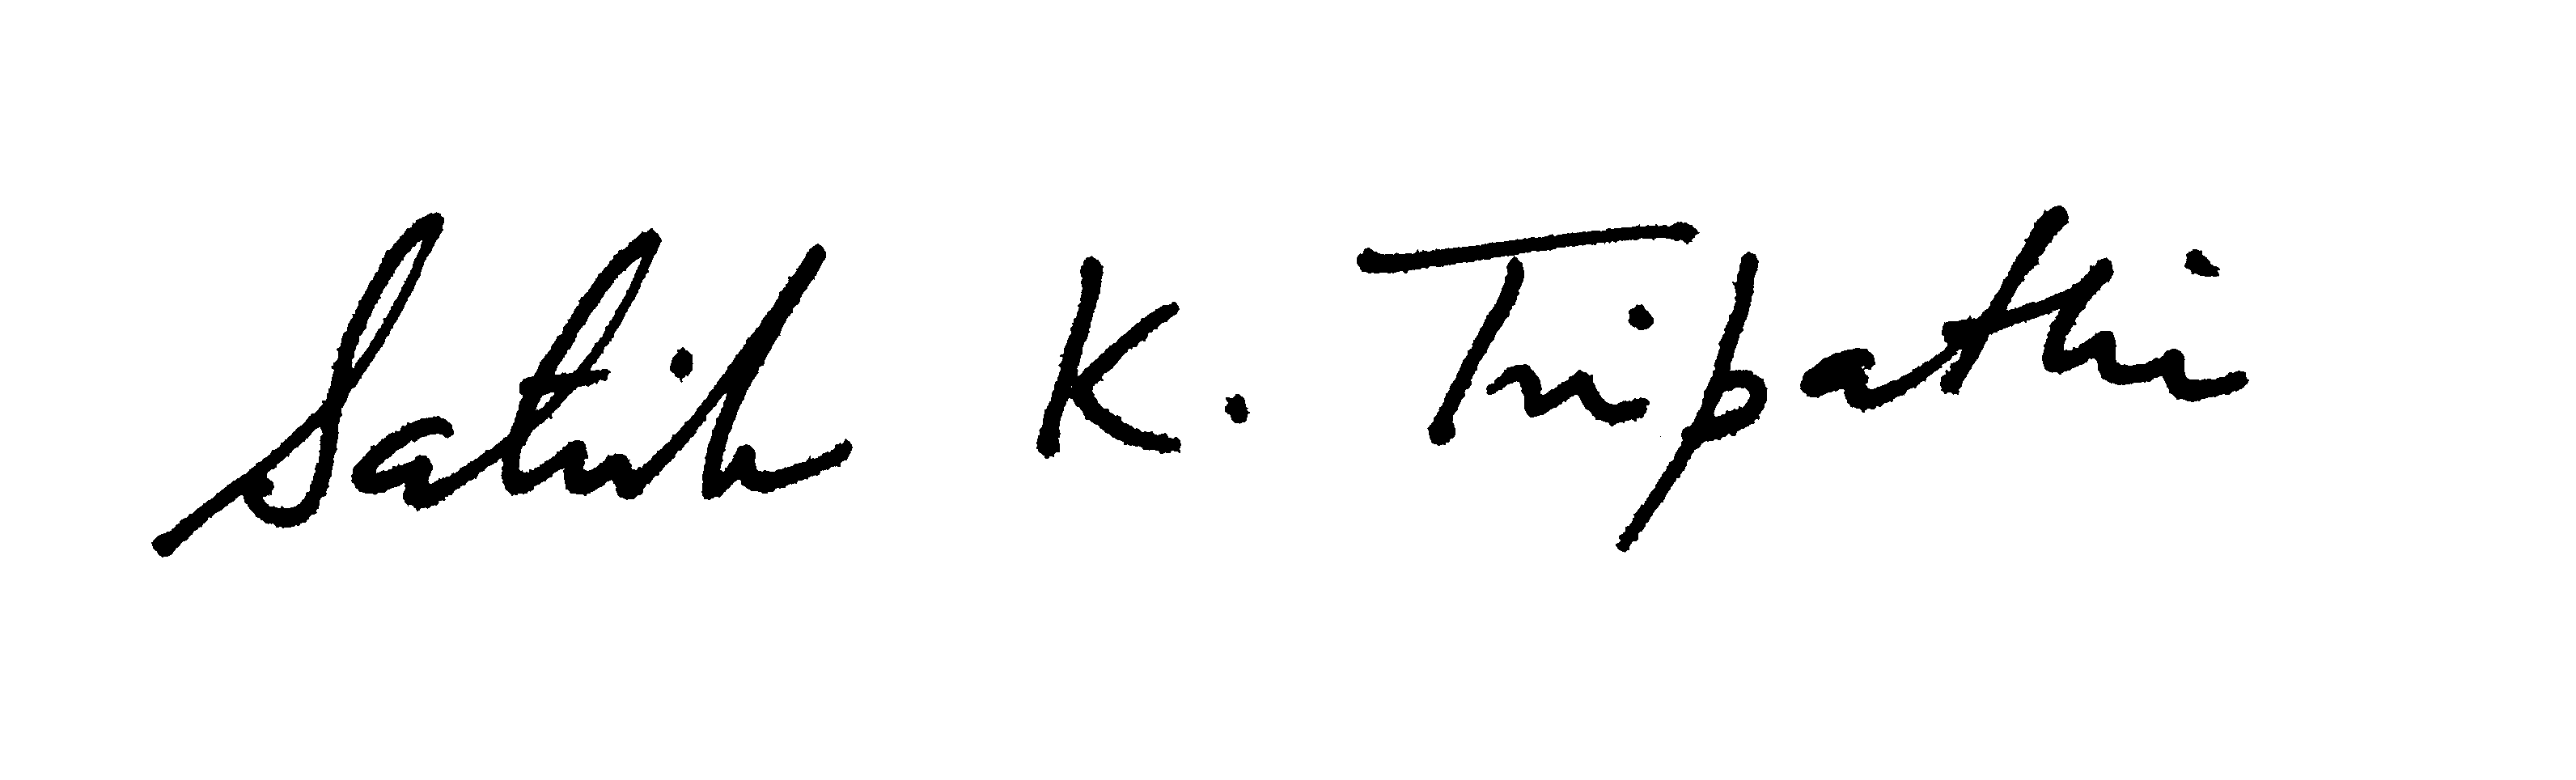 Satish K. Tripathi